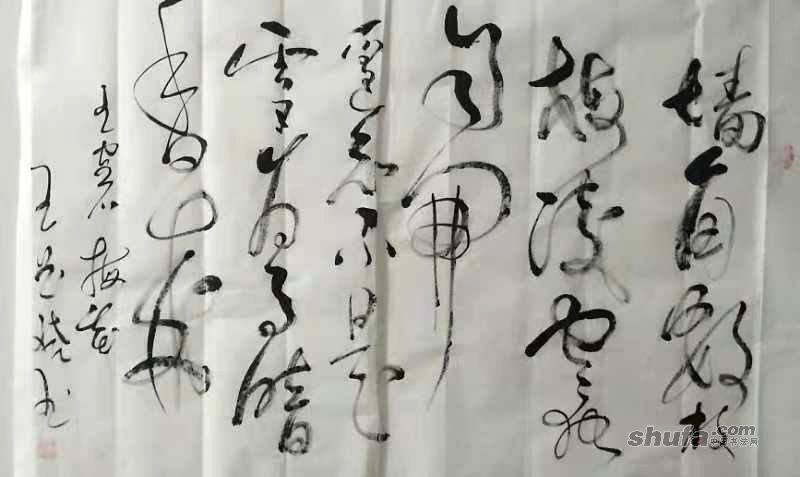 墙角数枝
梅凌寒独
自開
遥知不是
雪为有暗
香来
王安石梅花
王书
shufa.com
中国书法网